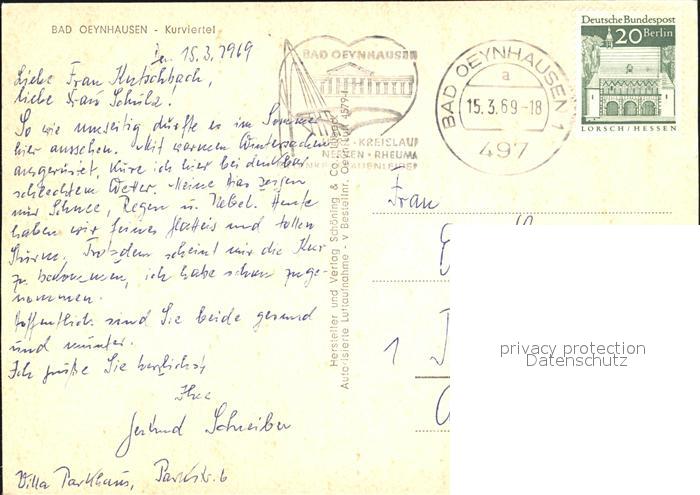 BAD OEYNHAUSEN - Kurviertel
den 15.3.1969
Liebe Frau Kutschbach,
liebe Frau Schulz.
So wie umseitig dürfte es im Sommer
hier aussehen. Mit warmen Wintersachen
ausgerüstet, kure ich hier bei denkbar
schlechtem Wetter. Meine Dias zeigen
nur Schnee, Regen u. Nebel. Heute
haben wir feines Glatteis und tollen
Sturm. Trotzdem scheint mir die Kur
zu bekommen, ich habe schon zuge-
nommen.
Hoffentlich sind Sie beide gesund
und munter.
Ich grüße Sie herzlichst
Ihre
Gertrud Schreiber
Villa Parkhaus, Parkstr. 6
Hersteller und Verlag Schöning & Co.
Autorisierte Luftaufnahme - v Bestellnr. Oeynh. Luft 4579
BAD OEYNHAUSEN
KREISLAUF
NERVEN · RHEUMA
FRAUENLEIDEN
BAD OEYNHAUSEN 1
a
15.3.69-18
497
Deutsche Bundespost
20 Berlin
LORSCH/HESSEN
Frau
1
privacy protection
Datenschutz